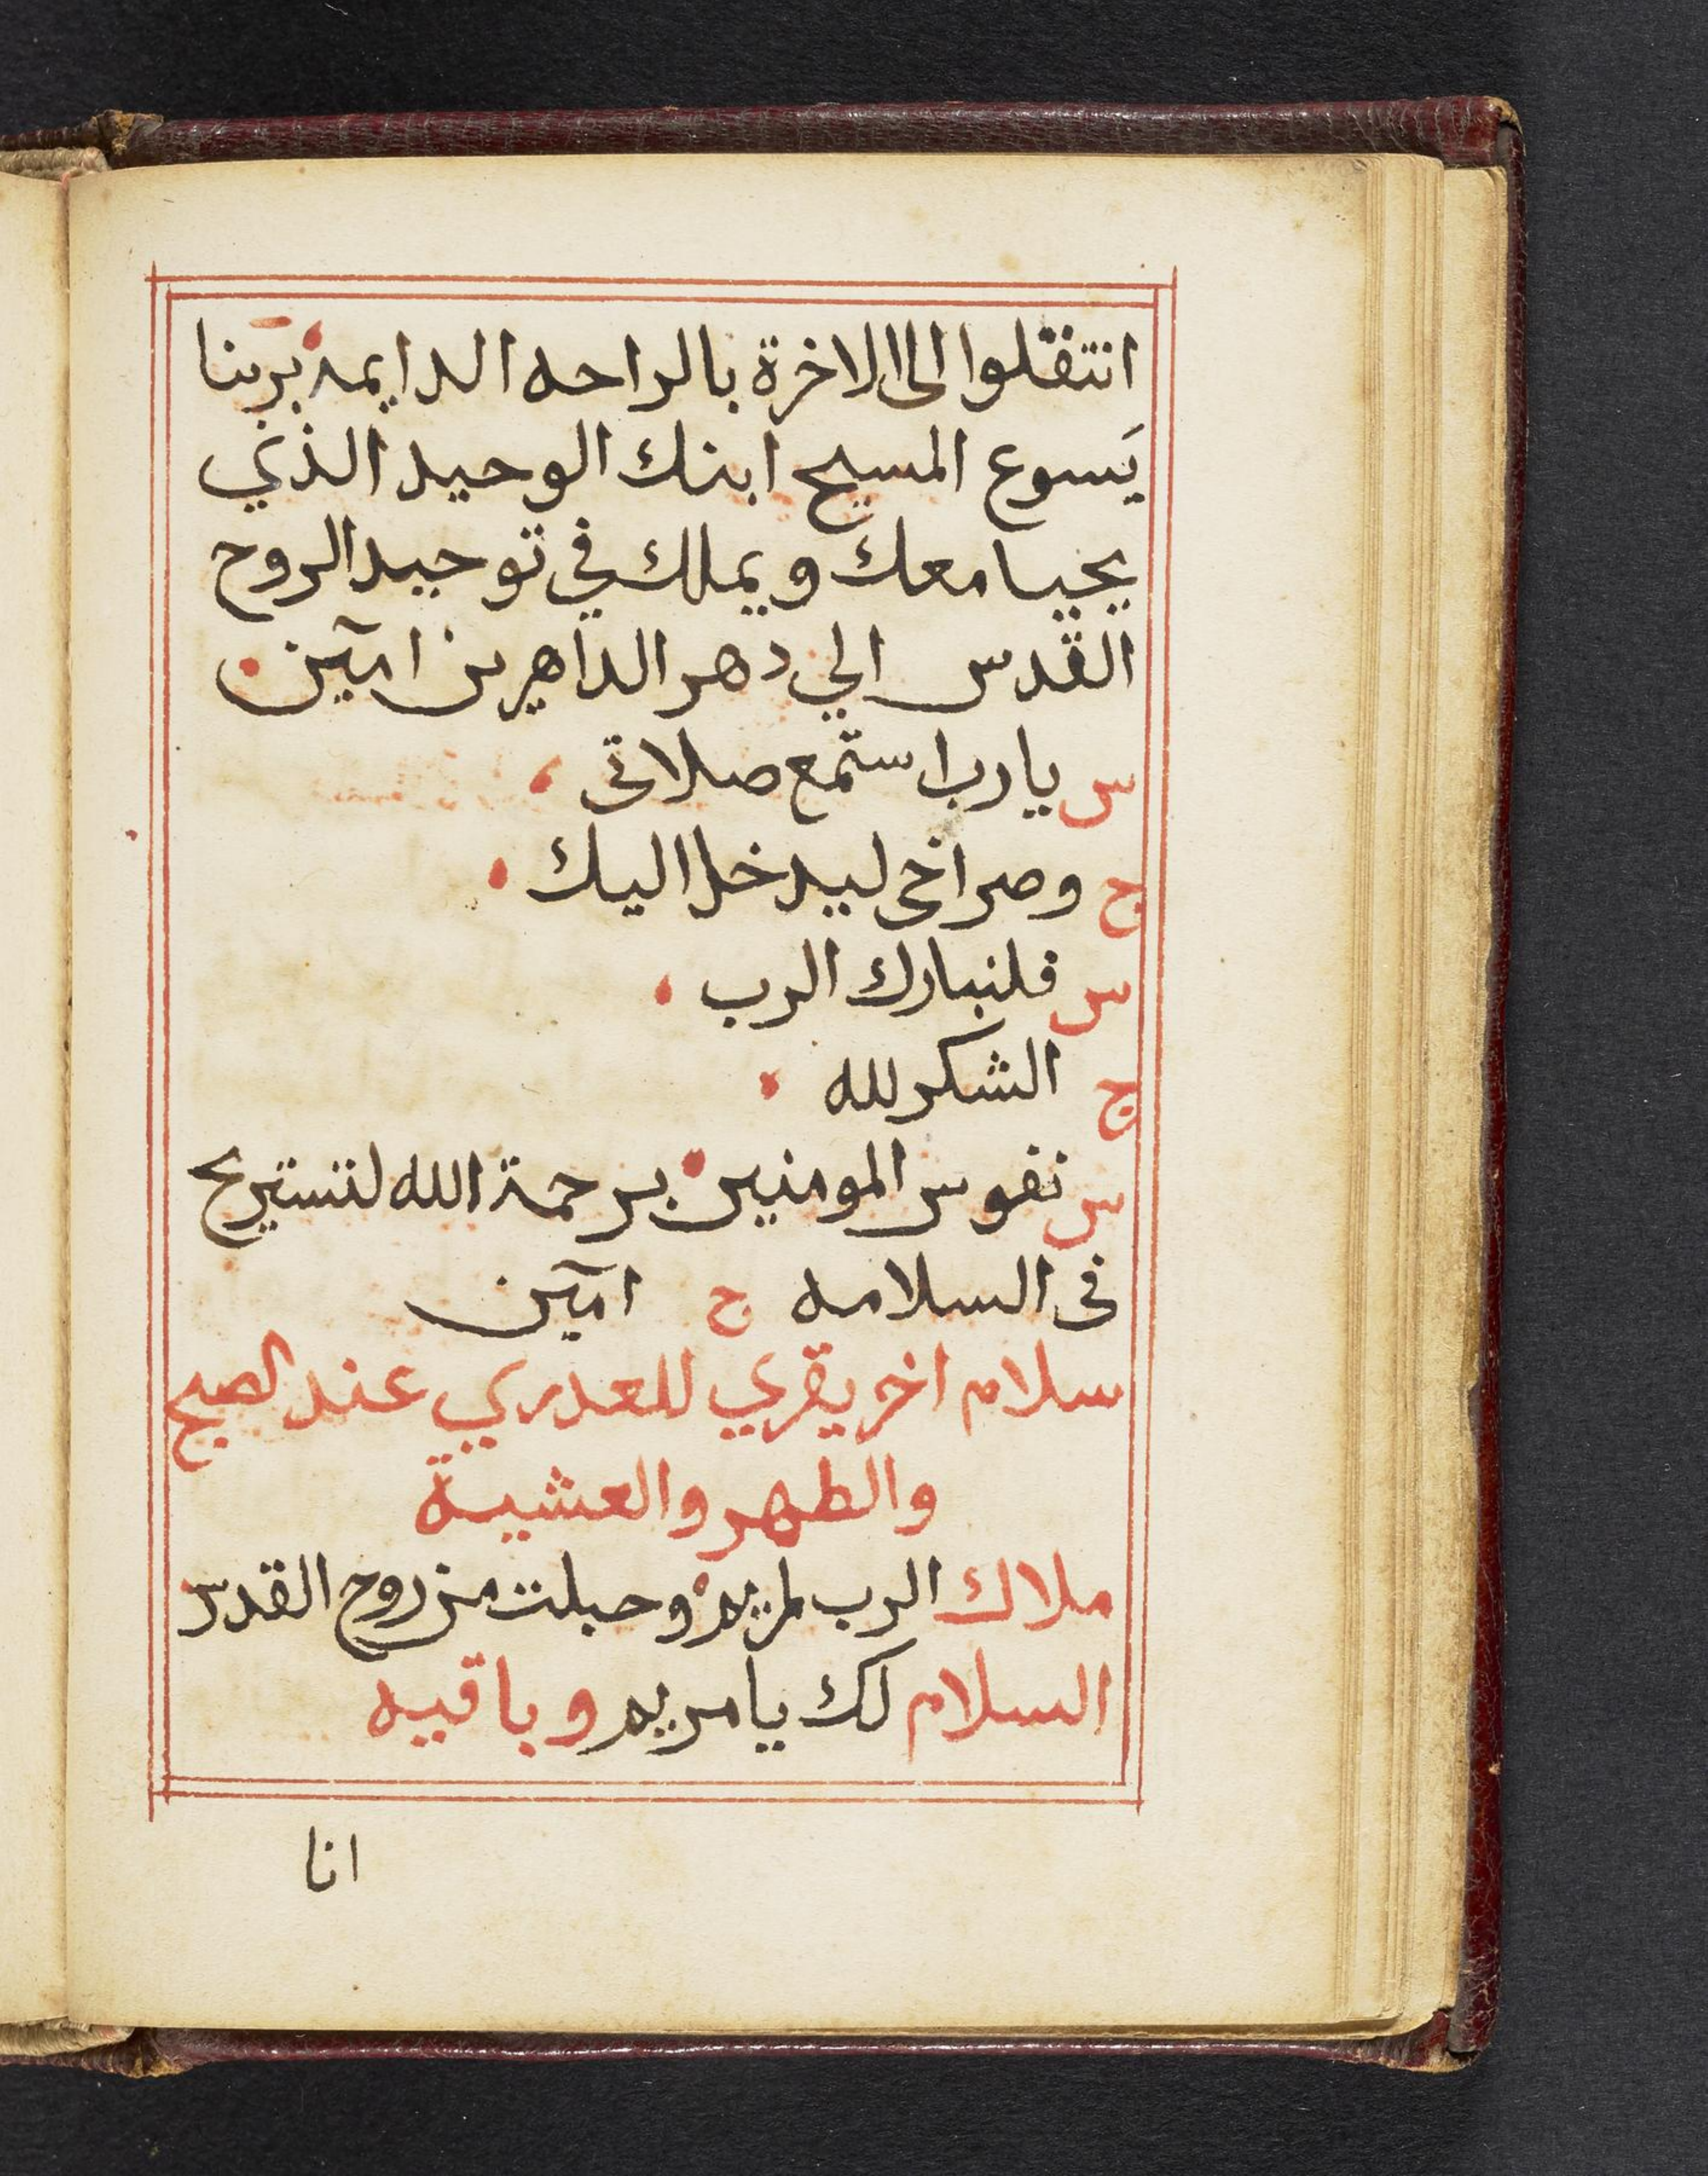 انتقلوا الى الاخرة بالراحه الدايمه بربنا
يَسوع المسيح ابنك الوحيد الذي
يحيا معك ويملك في توحيد الروح
القدس الي دهر الداهرين امين
س يا رب استمع صلاتى
ج وصراخى ليدخل اليك
س فلنبارك الرب
ج الشكر لله
س نفوس المومنين برحمة الله لتستريح
فى السلامه ج امين
سلام اخر يقري للعدري عند الصبح
والظهر والعشية
ملاك الرب لمريم وحبلت من روح القدس
السلام لك يا مريم وباقيه
انا